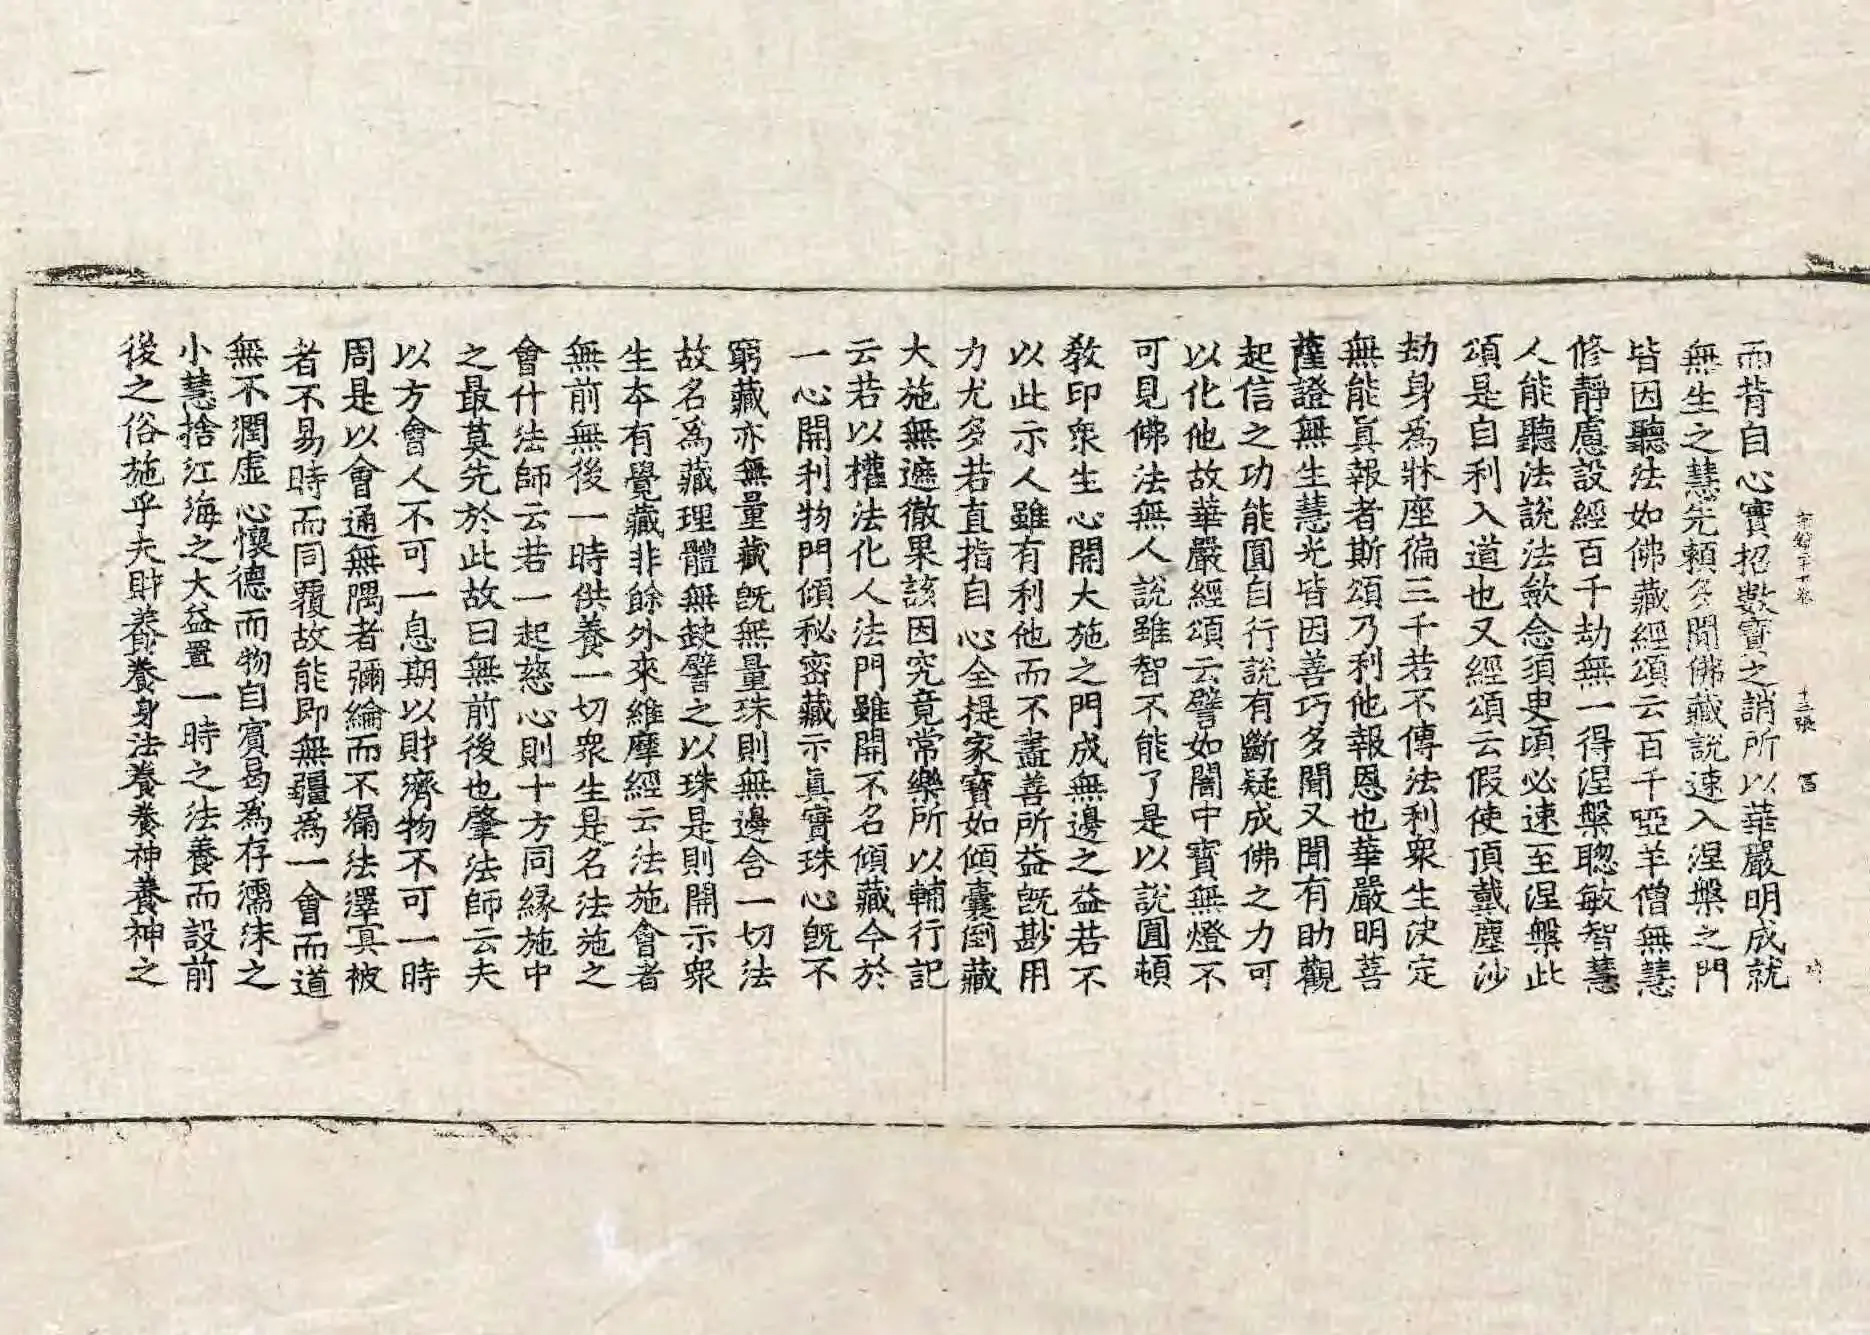 宗鏡二十六卷　十三張　冨
而背自心實招數寶之誚所以華嚴明成就
無生之慧先賴多聞佛藏說速入涅槃之門
皆因聽法如佛藏經頌云百千啞羊僧無慧
修靜慮設經百千劫無一得涅槃聦敏智慧
人能聽法說法歛念須臾頃必速至涅槃此
頌是自利入道也又經頌云假使頂戴塵沙
劫身為牀座徧三千若不傳法利衆生決定
無能眞報者斯頌乃利他報恩也華嚴明菩
薩證無生慧光皆因善巧多聞又聞有助觀
起信之功能圓自行說有斷疑成佛之力可
以化他故華嚴經頌云譬如闇中寶無燈不
可見佛法無人說雖智不能了是以說圓頓
敎印衆生心開大施之門成無邊之益若不
以此示人雖有利他而不盡善所益旣尠用
力尤多若直指自心全提家寶如傾囊倒藏
大施無遮徹果該因究竟常樂所以輔行記
云若以權法化人法門雖開不名傾藏今於
一心開利物門傾秘密藏示眞實珠心旣不
窮藏亦無量藏旣無量珠則無邊含一切法
故名為藏理體無缺譬之以珠是則開示衆
生本有覺藏非餘外來維摩經云法施會者
無前無後一時供養一切衆生是名法施之
會什法師云若一起慈心則十方同縁施中
之最莫先於此故曰無前後也肇法師云夫
以方會人不可一息期以財濟物不可一時
周是以會通無隅者彌綸而不漏法澤冥被
者不易時而同覆故能即無疆為一會而道
無不潤虛心懷德而物自賓曷為存濡沫之
小慧捨江海之大益置一時之法養而設前
後之俗施乎夫財養養身法養養神養神之